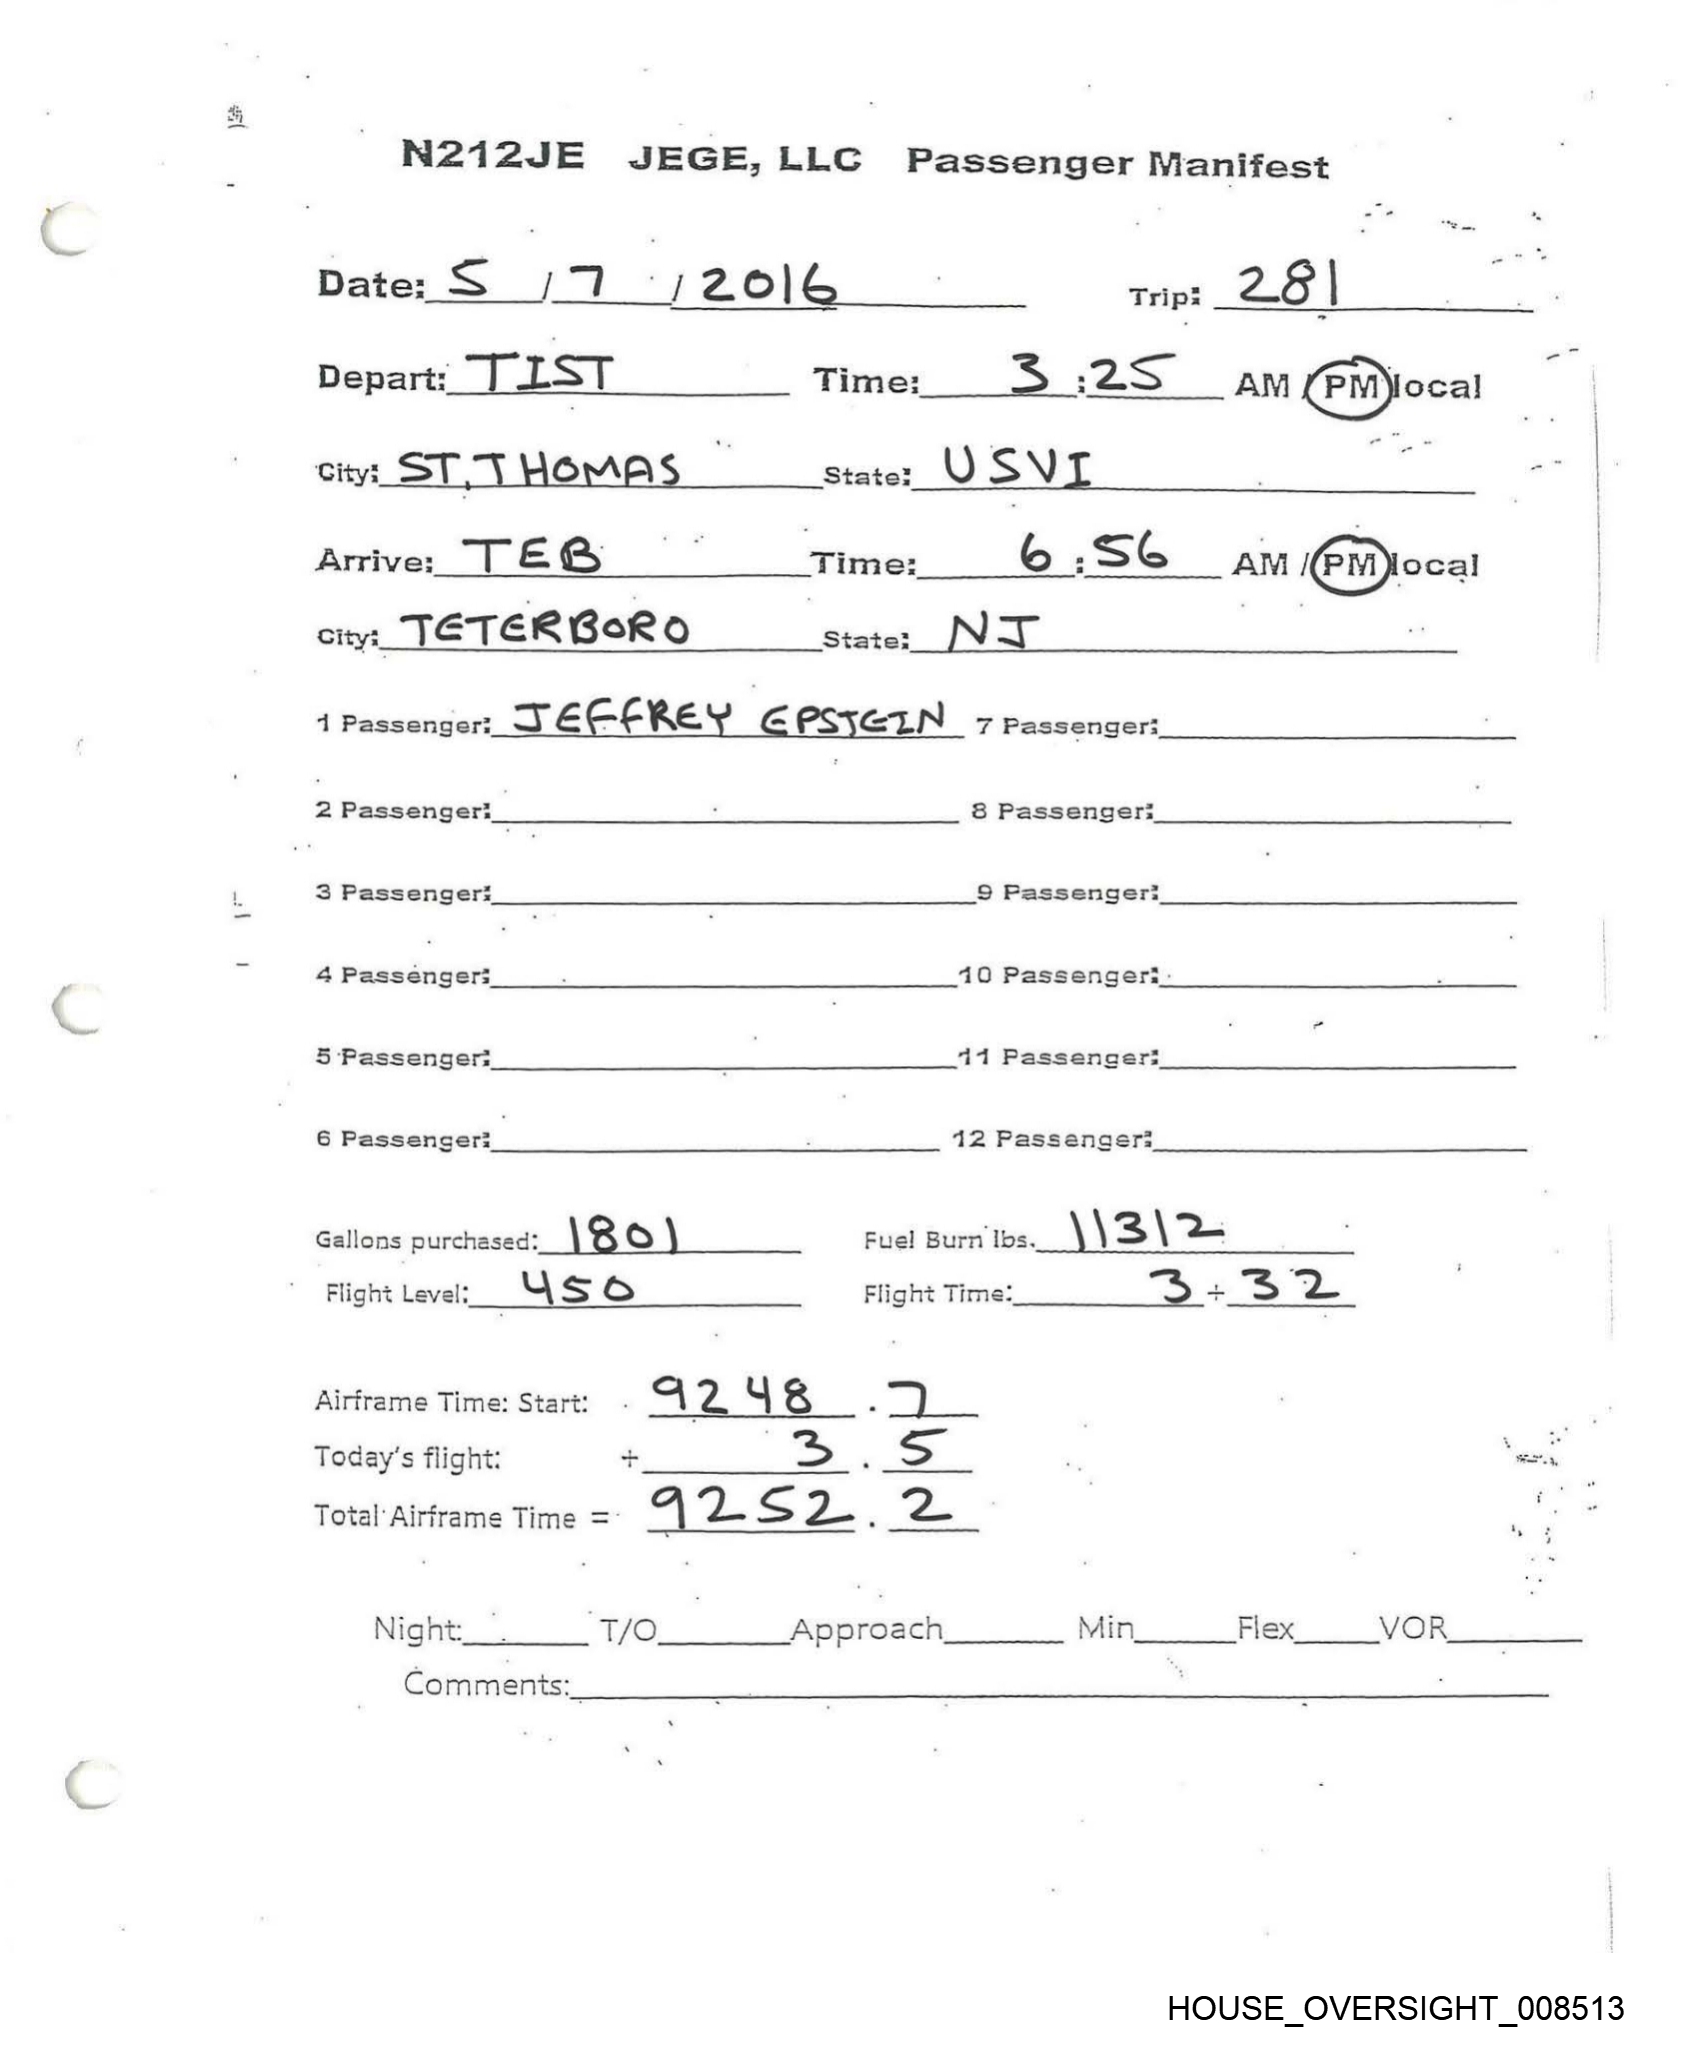 N212JE JEGE, LLC Passenger Manifest
Date: 5 / 7 / 2016 Trip: 281
Depart: TIST Time: 3:25 AM / PM local
City: ST. THOMAS State: USVI
Arrive: TEB Time: 6:56 AM / PM local
City: TETERBORO State: NJ
1 Passenger: JEFFREY EPSTEIN 7 Passenger:
2 Passenger: 8 Passenger:
3 Passenger: 9 Passenger:
4 Passenger: 10 Passenger:
5 Passenger: 11 Passenger:
6 Passenger: 12 Passenger:
Gallons purchased: 1801 Fuel Burn lbs. 11312
Flight Level: 450 Flight Time: 3 + 32
Airframe Time: Start: 9248.7
Today's flight: + 3.5
Total Airframe Time = 9252.2
Night: T/O Approach Min Flex VOR
Comments:
HOUSE_OVERSIGHT_008513